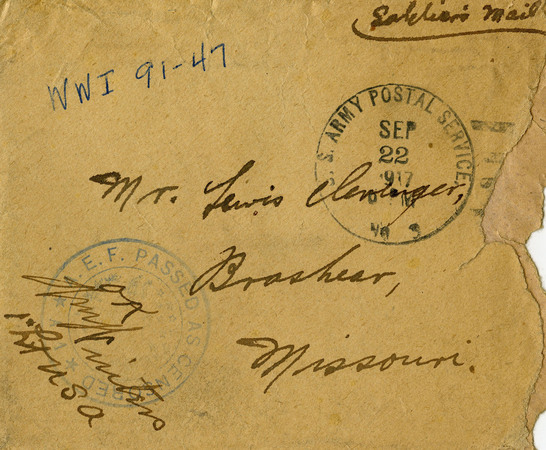 Soldier's Mail
WWI 91-47
U.S. ARMY POSTAL SERVICE
SEP
22
1917
No 3
Mr. Lewis Clevenger,
Brashear,
Missouri.
A.E.F. PASSED AS CENSORED
OK
1st Lt USA